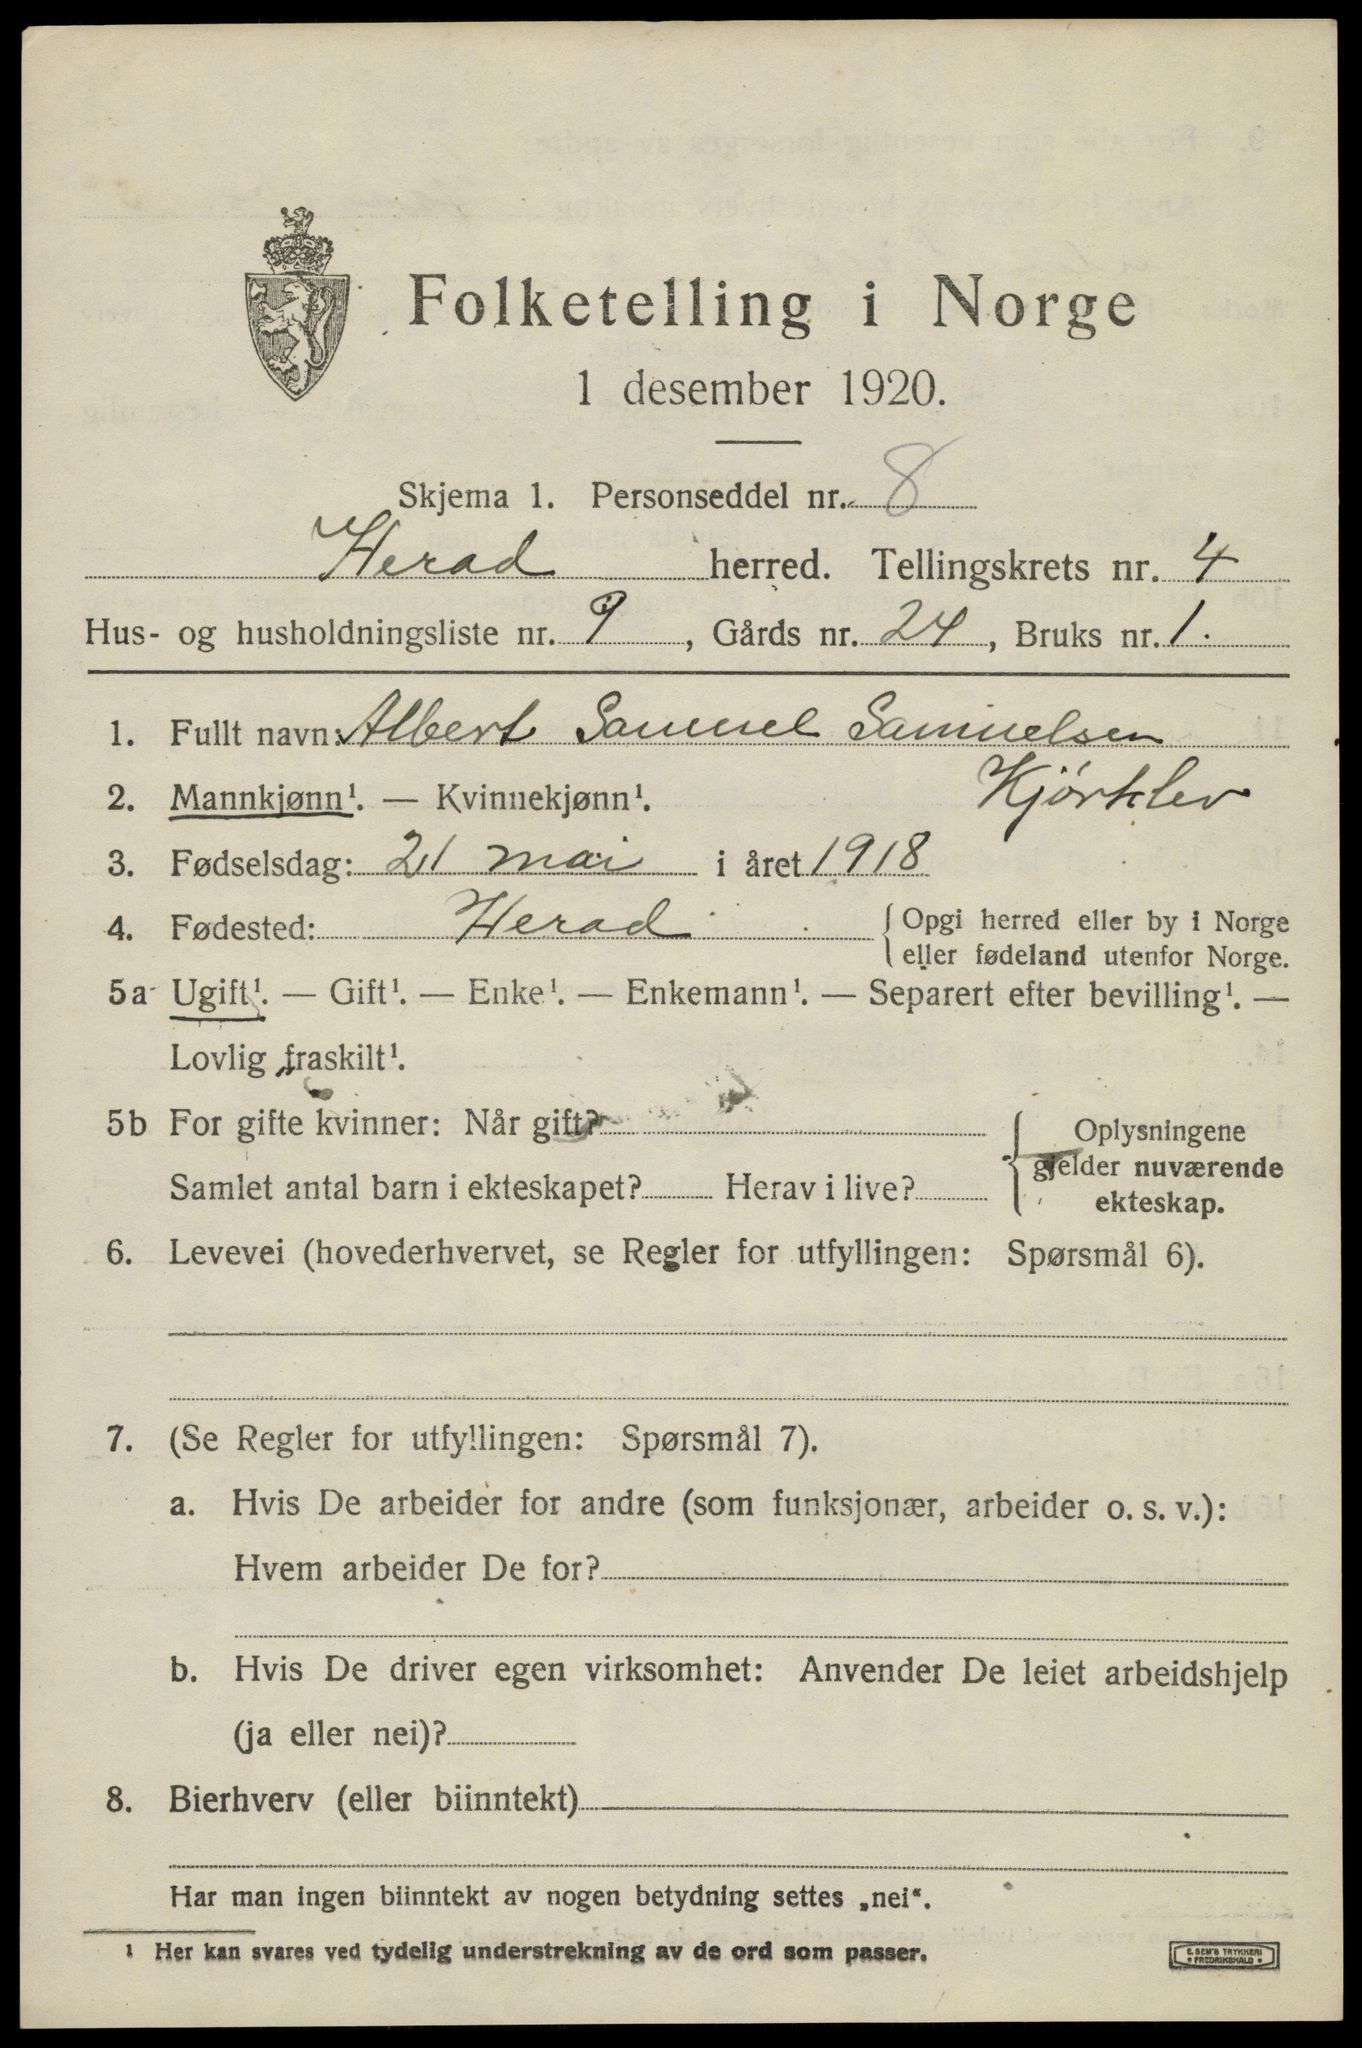 Folketelling i Norge
1 desember 1920.
Skjema 1. Personseddel nr. 8
Herad herred. Tellingskrets nr. 4
Hus- og husholdningsliste nr. 9, Gårds nr. 24, Bruks nr. 1.
1. Fullt navn: Albert Samuel Samuelsen
Kjørklev
2. Mannkjønn¹. — Kvinnekjønn¹.
3. Fødselsdag: 21 mai i året 1918
4. Fødested: Herad {Opgi herred eller by i Norge
eller fødeland utenfor Norge.
5a Ugift¹. — Gift¹. — Enke¹. — Enkemann¹. — Separert efter bevilling¹. —
Lovlig fraskilt¹.
5b For gifte kvinner: Når gift?
Samlet antal barn i ekteskapet? Herav i live?
{Oplysningene
gjelder nuværende
ekteskap.
6. Levevei (hovederhvervet, se Regler for utfyllingen: Spørsmål 6).
7. (Se Regler for utfyllingen: Spørsmål 7).
a. Hvis De arbeider for andre (som funksjonær, arbeider o. s. v.):
Hvem arbeider De for?
b. Hvis De driver egen virksomhet: Anvender De leiet arbeidshjelp
(ja eller nei)?
8. Bierhverv (eller biinntekt)
Har man ingen biinntekt av nogen betydning settes „nei“.
¹ Her kan svares ved tydelig understrekning av de ord som passer.
E. SEM'S TRYKKERI
• FREDRIKSHALD •